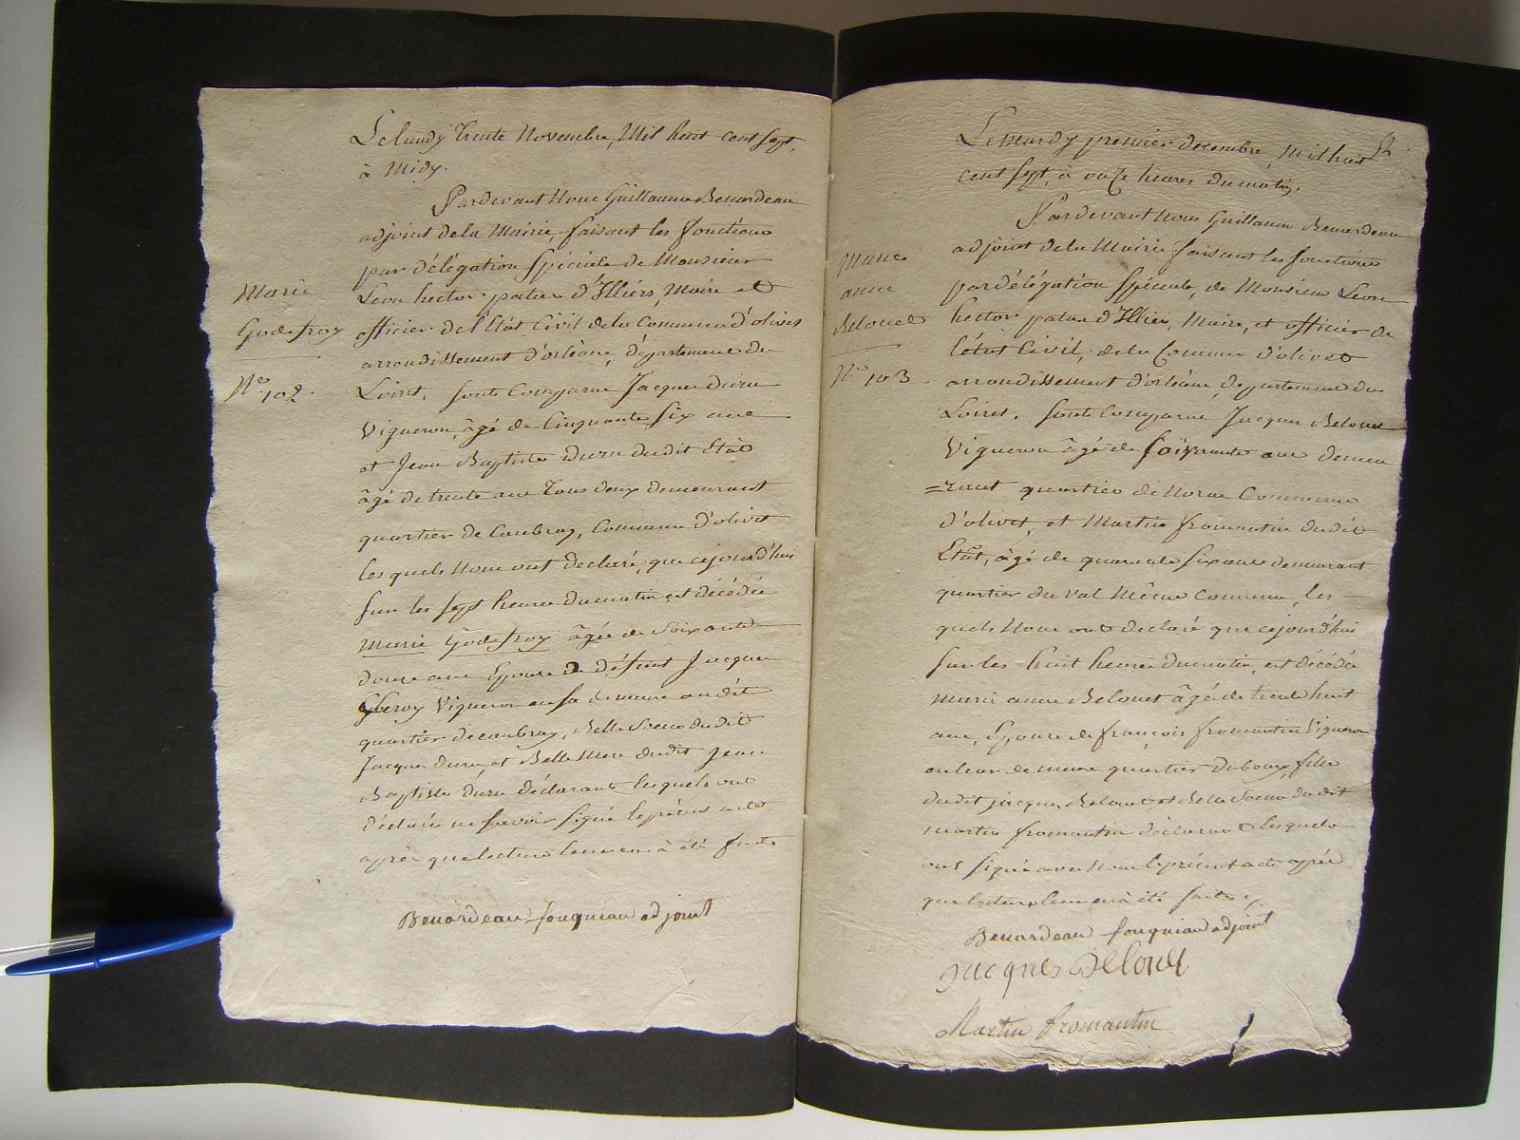 Le lundy trente Novembre, Mil huit cent sept,
à Midy.
Pardevant Nous Guillaume Benardeau
adjoint de la Mairie, faisant les fonctions
par délégation spéciale de Monsieur
Marie
Leon hector patas d'Illiers, Maire et
Godefroy
officier de l'Etat Civil de la Commune d'olivet
arrondissement d'orléans, département du
N.o 102.
Loiret, sont Comparus Jacques duru
Vigneron, âgé de Cinquante six ans
et Jean Baptiste Duru dudit Etat
âgé de trente ans tous deux demeurant
quartier de Caubray, Commune d'olivet
les quels Nous ont declaré, que cejourd'hui
sur les sept heures du matin est décédée
Marie Godefroy âgée de soixante
douze ans Epouse de défunt Jacques
Vigneron en sa demeure audit
quartier de caubray, Belle Soeur dudit
Jacques Duru, et Belle Mere dudit Jean
Baptiste Duru déclarant lesquels ont
déclaré ne savoir signé le présent acte
après que lecture leur en à été faite
Benardeau fouqueau adjoint
Le mardy premier decembre, Mil huit
cent sept, à onze heures du matin.
Pardevant Nous Guillaume Benardeau
adjoint de la Mairie faisant les fonctions
Marie
anne
par délégation Spéciale, de Monsieur Leon
Belouet
hector patas d'Illiers, Maire, et officier de
l'état Civil, de la Commune d'olivet
N.o 103.
arrondissement d'orléans, département du
Loiret. sont Comparus Jacques Belouet
Vigneron âgé de soixante ans demeu
=rant quartier de Commune
d'olivet, et Martin fromentin dudit
Etat, âgé de quarante six ans demeurant
quartier du val Même Commune, les
quels Nous ont declaré que cejourd'hui
sur les huit heures du matin, est décédée
marie anne Belouet âgée de trente huit
ans, Epouse de françois fromentin Vigneron
en leur demeure quartier Dubourg, fille
dudit jacques Belouet et Belle Soeur dudit
martin fromentin déclarant lesquels
ont signé avec Nous le présent acte après
que lecture leur en à été faite.
Benardeau fouqueau adjoint
Jacques Belouet
Martin fromantin